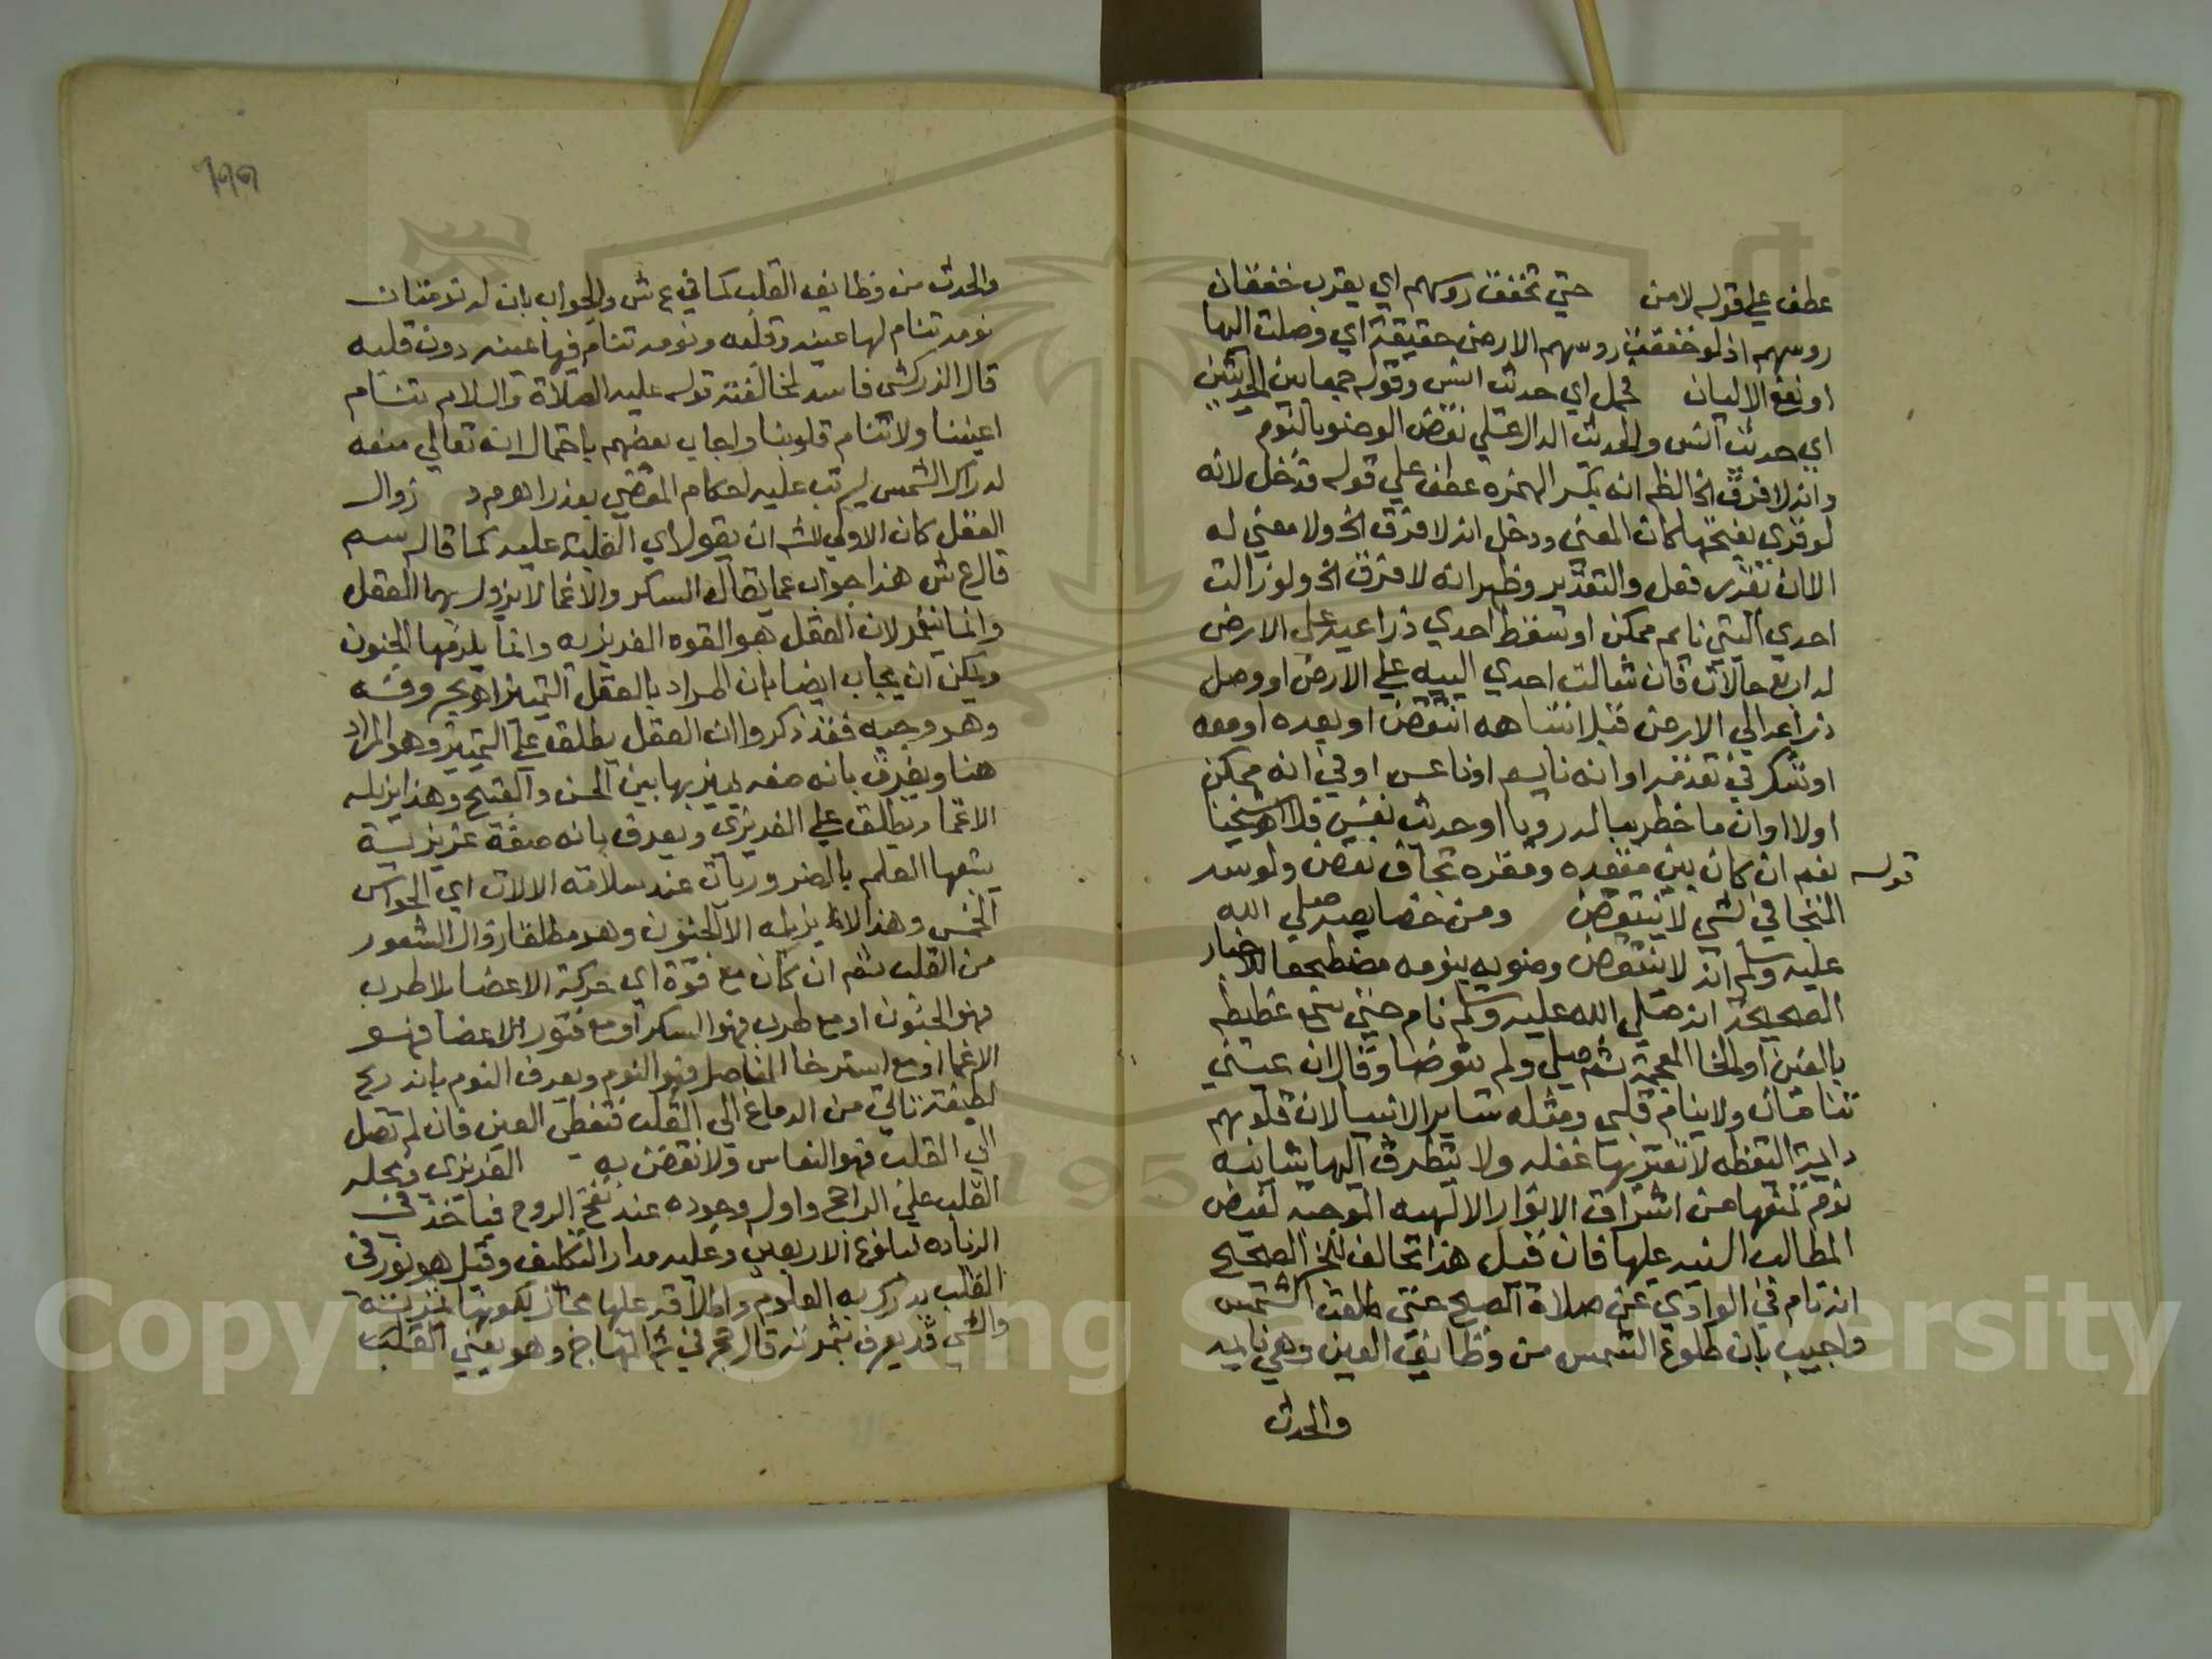 عطف علي قوله لامن حتي تخفق روسهم اي يقرب خفقان
روسهم اذ لو خفقت روسهم الارض حقيقة اي وصلت اليها
او نفع الاليان فحمل اي حديث انس وقوله جمعا بين الحديثين
اي حديث انس والحديث الدال علي نقض الوضو بالنوم
وانه لا فرق الخ الظم انه بكسر الهمزه عطف علي قوله قدخل لانه
لو قري بفتحها لكان المعني ودخل انه لا فرق الخ ولا معني له
الا ان نقدر فعل والتقدير وظهر انه لا فرق الخ ولو زالت
احدي اليتي نايم ممكن او سقط احدي ذراعيه علي الارض
له اربع حالات فان شالت احدي الييه علي الارض او وصل
ذراعه الي الارض قبل انتباهه انتقض او بعده او معه
او شكر في تقدمه او انه نايم او ناعس او في انه ممكن
اولا او ان ما خطر بباله رويا او حديث نفس فلا اهر شيخنا
قوله نعم ان كان بين مقعده ومقره تجاف نقض ولو سد
المتجافي بشي لا ينتقض ومن خصايصه صلي الله
عليه وسلم انه لا ينتقض وضويه بنومه مضطجعا للاخبار
الصحيحة انه صلي الله عليه وسلم نام حتي سمع غطيطه
بالغين او بالخا المعجمة ثم صلي ولم يتوضا وقال ان عيني
تنامان ولا ينام قلبي ومثله ساير الانبيا لان قلوبهم
دايمة اليقظه لا تعتريها غفله ولا يتطرق اليها شايبة
نوم لمنعها من اشراق الانوار الالهيه الموجبه لفيض
المطالب السنيه عليها فان قيل هذا مخالف للخبر الصحيح
انه نام في الوادي عن صلاة الصبح حتي طلعت الشمس
واجيب بان طلوع الشمس من وظايف العين وهي نايمه
والحدث
١٩٩
والحدث من وظايف القلب كما في ع ش والجواب بان له نومتان
نومه تنام لها عينه وقلبه ونومه تنام فيها عينه دون قلبه
قال الزركشي فاسد لمخالفته قوله عليه الصلاة والسلام تنام
اعيننا ولا تنام قلوبنا واجاب بعضهم باحتمال انه تعالي منعه
ادراك الشمس ليرتب عليه احكام المقضي بعذر اهر م د زوال
العقل كان الاولي للش ان يقول اي الغلبة عليه كما قاله سم
قال ع ش هذا جواب عما يقال السكر والاغما لا يزول بهما العقل
وانما ينغمر لان العقل هو القوه الغريزيه وانما يلزمها الجنون
ويمكن ان يجاب ايضا بان المراد بالعقل التمييز اهر بحروفه
وهو وجيه فقد ذكروا ان العقل يطلق علي التمييز وهو المراد
هنا ويعرف بانه صفه يميز بها بين الحسن والقبيح وهذا يزيله
الاغما ويطلق علي الغريزي ويعرف بانه صفة غريزية
يتبعها العلم بالضروريات عند سلامة الالات اي الحواس
الخمس وهذا لا يزيله الا الجنون وهو مطلقا زوال الشعور
من القلب ثم ان كان مع قوة اي حركة الاعضا بلا طرب
فهو الجنون او مع طرب فهو السكر او مع فتور الاعضا فهو
الاغما او مع استرخا المفاصل فهو النوم ويعرف النوم بانه ريح
لطيفة تاتي من الدماغ الي القلب فتغطي العين فان لم تصل
الي القلب فهو النعاس ولا نقض به الغريزي ومحله
القلب علي الراجح واول وجوده عند نفخ الروح فياخذ في
الزياده لبلوغ الاربعين وعليه مدار التكليف وقيل هو نور في
القلب يدرك به العلوم واطلاقه عليها مجاز لكونها ثمرته
والشي قد يعرف بثمرته قال حج في ش المنهاج وهو يعني القلب